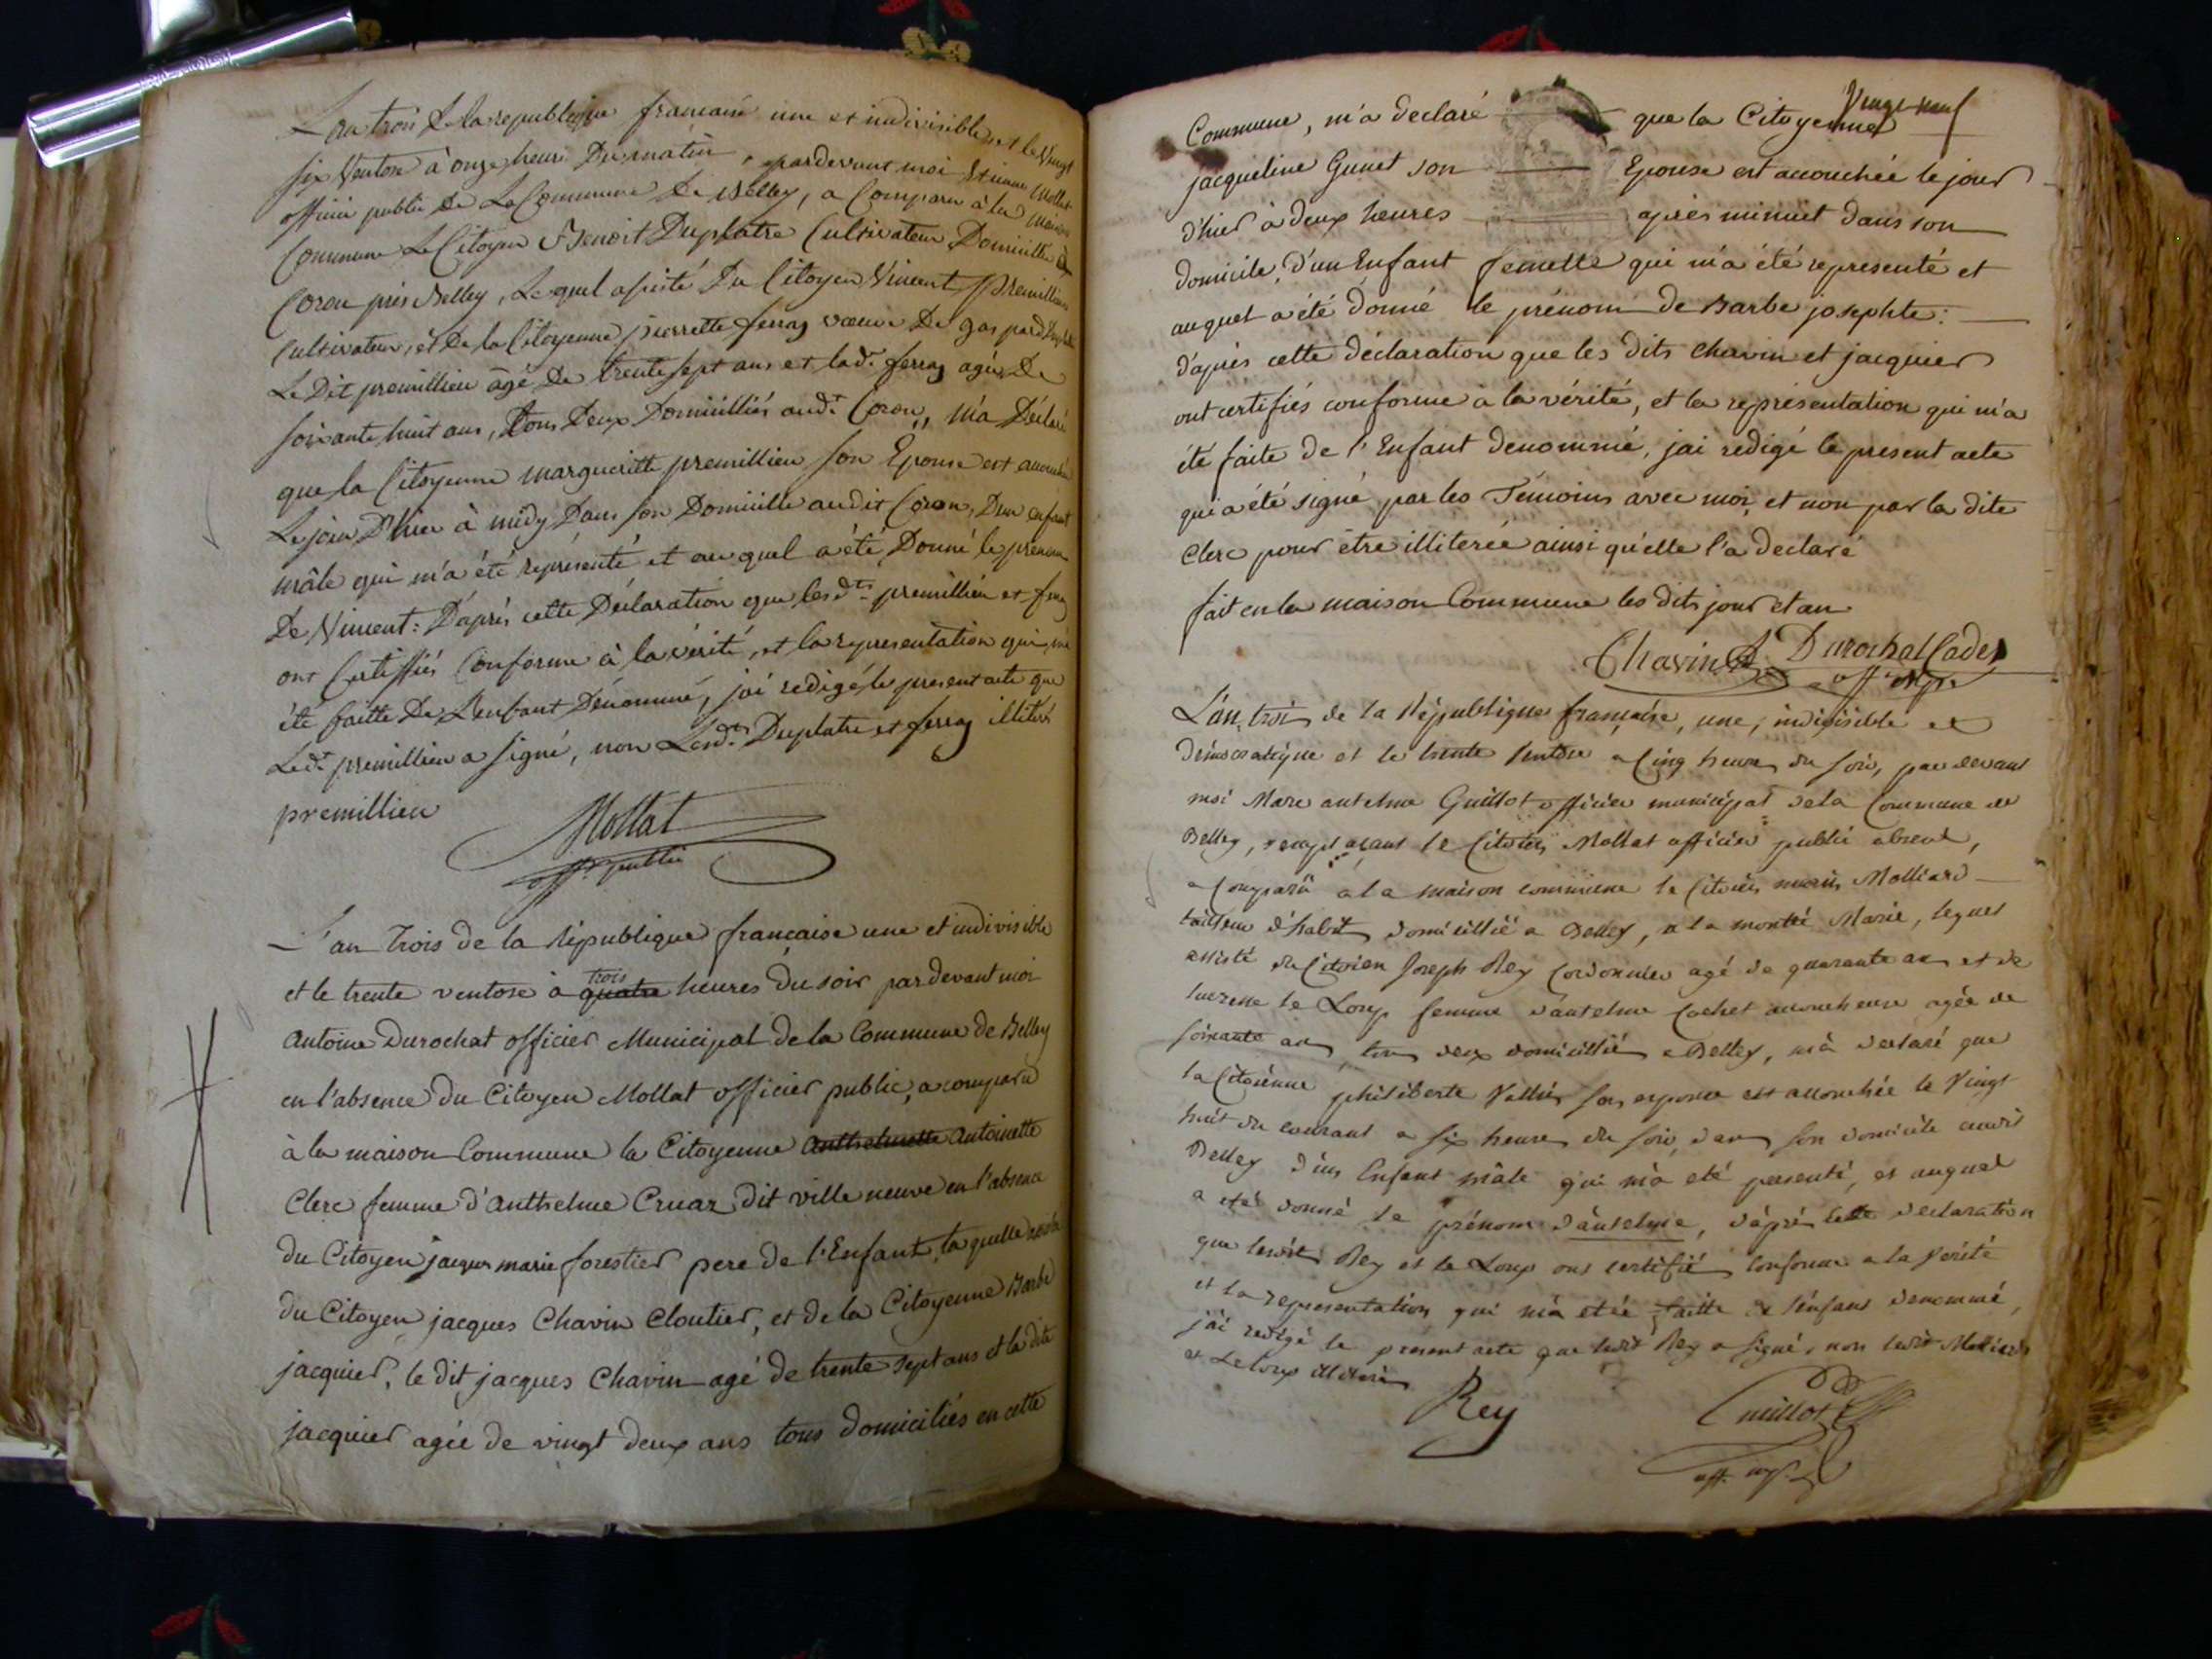 L'an trois de la republique francaise une et indivisible et le Vingt
six Ventose à onze heures Du matin, pardevant moi Etienne Mollat
officier public De La Commune De Belley, a Comparu à la Maison
Commune Le Citoyen Benoit Duplatre Cultivateur Domicillié à
Coron près Belley, Lequel assisté Du Citoyen Vincent Premillieu
Cultivateur, et De la Citoyenne pierrette ferraz veuve De gaspard
Le Dit premillieu âgé De trente sept ans et lad.e ferraz agée De
soixante huit ans, tous Deux Domicilliés aud.t Coron, M'a Déclaré
que la Citoyenne margueritte premillieu son Epouse est accouchée
Le jour D'hier à midy Dans son Domicille audit Coron, D'un enfant
mâle qui m'a été représenté et auquel a été Donné le prenom
De Vincent: D'après cette Déclaration que lesd.ts premillieu et ferraz
ont Certiffiés Conforme à la vérité, et la representation qui m'a
été faitte De L'enfant Dénommé, j'ai redigé le present acte que
Led.t premillieu a signé, non Lesd.ts Duplatre et ferraz illitérés
premillieu
Mollat
off.r public
L'an Trois de la République francaise une et indivisible
trois
et le trente ventose à quatre heures du soir pardevant moi
Antoine Durochat officier Municipal de la Commune de Belley
en l'absence du Citoyen Mollat officier public, a comparu
à la maison Commune la Citoyenne Anthelmette Antoinette
Clerc femme d'Anthelme Cruaz dit ville neuve en l'absence
du Citoyen jacques marie forestier pere de l'Enfant, laquelle
du Citoyen jacques Chavin Cloutier, et de la Citoyenne Barbe
jacquier, le dit jacques Chavin agé de trente sept ans et la dite
jacquier agée de vingt deux ans tous domiciliés en cette
Vingt neuf
Commune, m'a declaré que la Citoyenne
jacqueline Gunet son Epouse est accouchée le jour
d'hier à deux heures après minuit dans son
domicile, d'un Enfant femelle qui m'a été representé et
auquel a été donné le prénom de Barbe josephte:
d'après cette déclaration que les dits Chavin et jacquier
ont certifiés conforme à la vérité, et la représentation qui m'a
été faite de l'Enfant denommé, jai redigé le present acte
qui a été signé par les Témoins avec moi, et non par la dite
Clerc pour être illiterée ainsi qu'elle l'a declaré
fait en la maison Commune les dits jour et an
Chavin Durochat Cadet
off. mp.
L'an trois de la République française, une, indivisible et
démocratique et le trente ventose a Cinq heures du soir, par devant
moi Marc antelme Guillot officier municipal de la Commune de
Belley, remplaçant le Citoien Mollat officier public absent,
a Comparu a la maison commune le Citoien Molliard
tailleur d'habit domicillié a Belley, a la montée Marie, lequel
assisté du Citoien Joseph Rey Cordonnier agé de quarante ans et de
Lucresse le Loup femme d'antelme Cochet accoucheuse agée de
soixante ans tous deux domicilliés a Belley, m'a declaré que
la Citoiènne philiberte Vallier son epouse est accouchée le Vingt
huit du courant a six heures du soir, dans son domicile audit
Belley d'un Enfant mâle qui m'a eté presenté, et auquel
a eté donné le prénom d'antelme, d'après cette declaration
que lesdits Rey et le Loup ont certifié Conforme a la Vérité
et la representation qui m'a etée faitte de l'enfant denommé,
j'ai redigé le present acte que ledit Rey a signé, non ledit Molliard
et Le Loup illiterés
Rey Guillot
off. mp.